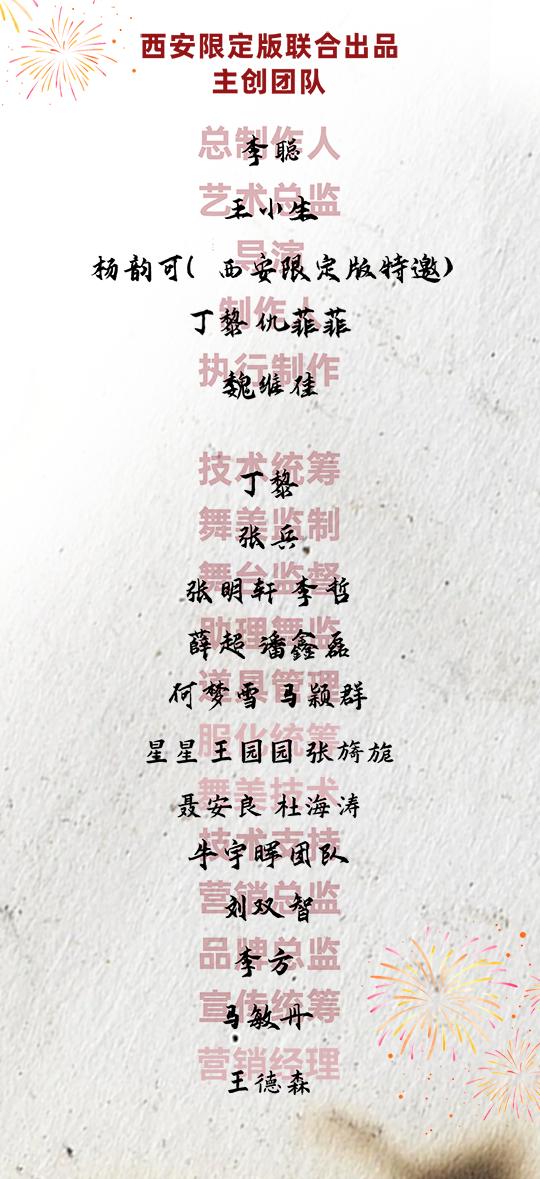 西安限定版联合出品
主创团队
总制作人
李聪
艺术总监
王小生
导演
杨韵可( 西安限定版特邀)
制作人
丁黎 仇菲菲
执行制作
魏维硅
技术统筹
丁黎
舞美监制
张兵
舞台监督
张明轩 李哲
助理舞监
薛超 潘鑫磊
道具管理
何梦雪 马颖群
服化统筹
星星 王园园 张旖旎
舞美技术
聂安良 杜海涛
技术支持
牛宇晖团队
营销总监
刘双智
品牌总监
李方
宣传统筹
马敏丹
营销经理
王德森